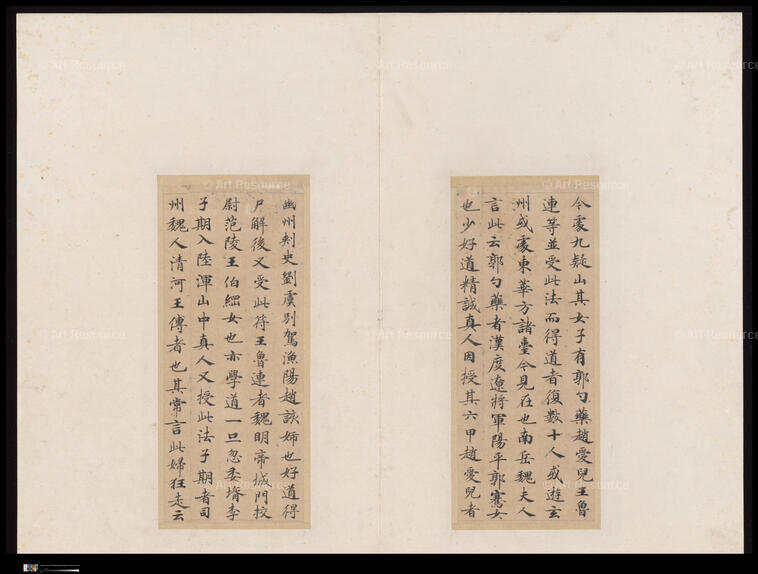 © Art Resource
© Art Resource
© Art Resource
© Art Resource
© Art Resource
今處九疑山其女子有郭勺藥趙愛兒王魯
連等並受此法而得道者復數十人或遊玄
州或處東華方諸臺今見在也南岳魏夫人
言此云郭勺藥者漢度遼將軍陽平郭騫女
也少好道精誠真人因授其六甲趙愛兒者
幽州刺史劉虞別駕漁陽趙該姊也好道得
尸解後又受此符王魯連者魏明帝城門校
尉范陵王伯綱女也亦學道一旦忽委壻李
子期入陸渾山中真人又授此法子期者司
州魏人清河王傅者也其常言此婦狂走云
© Art Resource
© Art Resource
© Art Resource
© Art Resource
© Art Resource